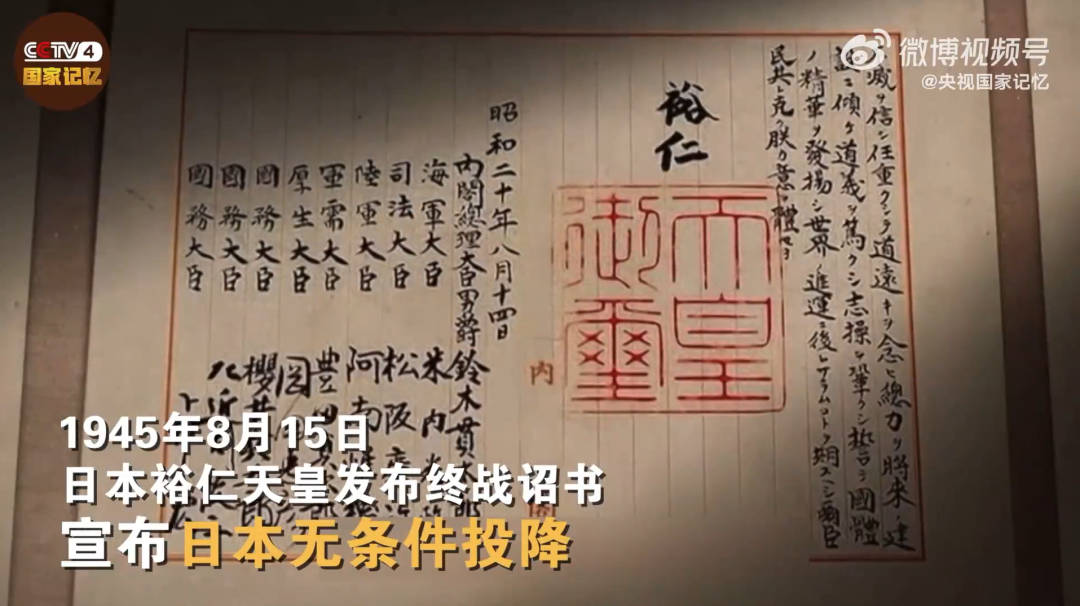 CCTV4
国家记忆
微博视频号
@央视国家记忆
滅ヲ信シ任重クシテ道遠キヲ念ヒ總力ヲ將來ノ建
設ニ傾ケ道義ヲ篤クシ志操ヲ鞏クシ誓テ國體
ノ精華ヲ發揚シ世界ノ進運ニ後レサラムコトヲ期スヘシ爾臣
民其レ克ク朕カ意ヲ體セヨ
裕仁
天皇
御璽
内
昭和二十年八月十四日
内閣總理大臣男爵鈴木貫
海軍大臣 米内
司法大臣 松阪
陸軍大臣 阿南
軍需大臣 豊田
厚生大臣 岡
國務大臣 櫻井
國務大臣
國務大臣
1945年8月15日
日本裕仁天皇发布终战诏书
宣布日本无条件投降